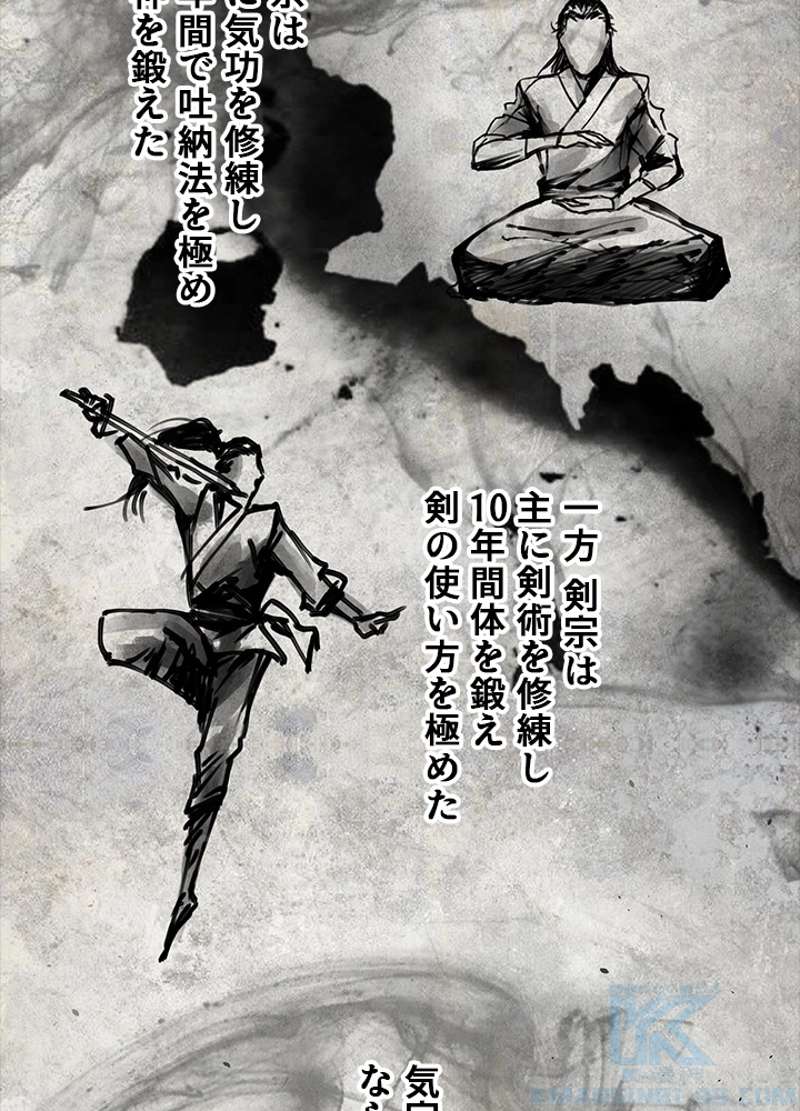 宗は
に気功を修練し
年間で吐納法を極め
体を鍛えた
一方 剣宗は
主に剣術を修練し
10年間体を鍛え
剣の使い方を極めた
気宗
なら